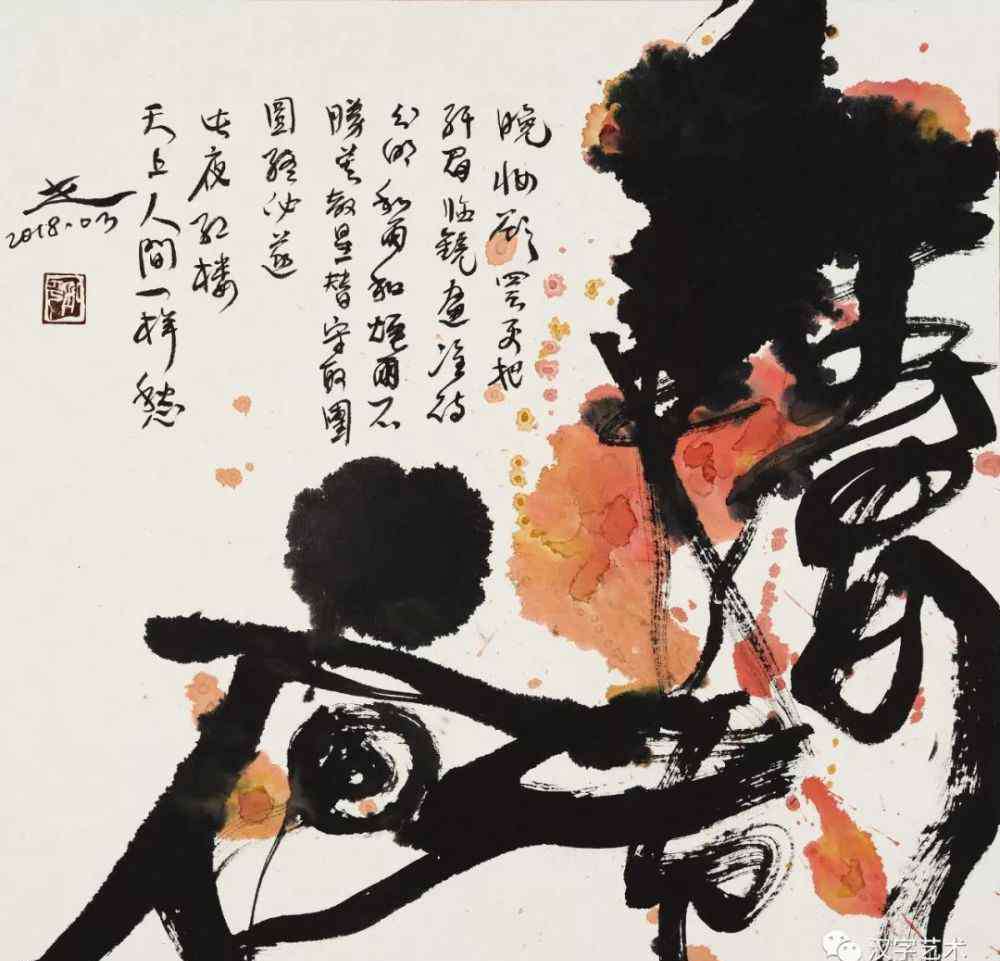 晚妆欲罢更把
纤眉临镜画准待
分明和雨和烟两不
胜莫教星替守取团
圆终必遂
此夜红楼
天上人间一样愁
2018.03
汉字艺术